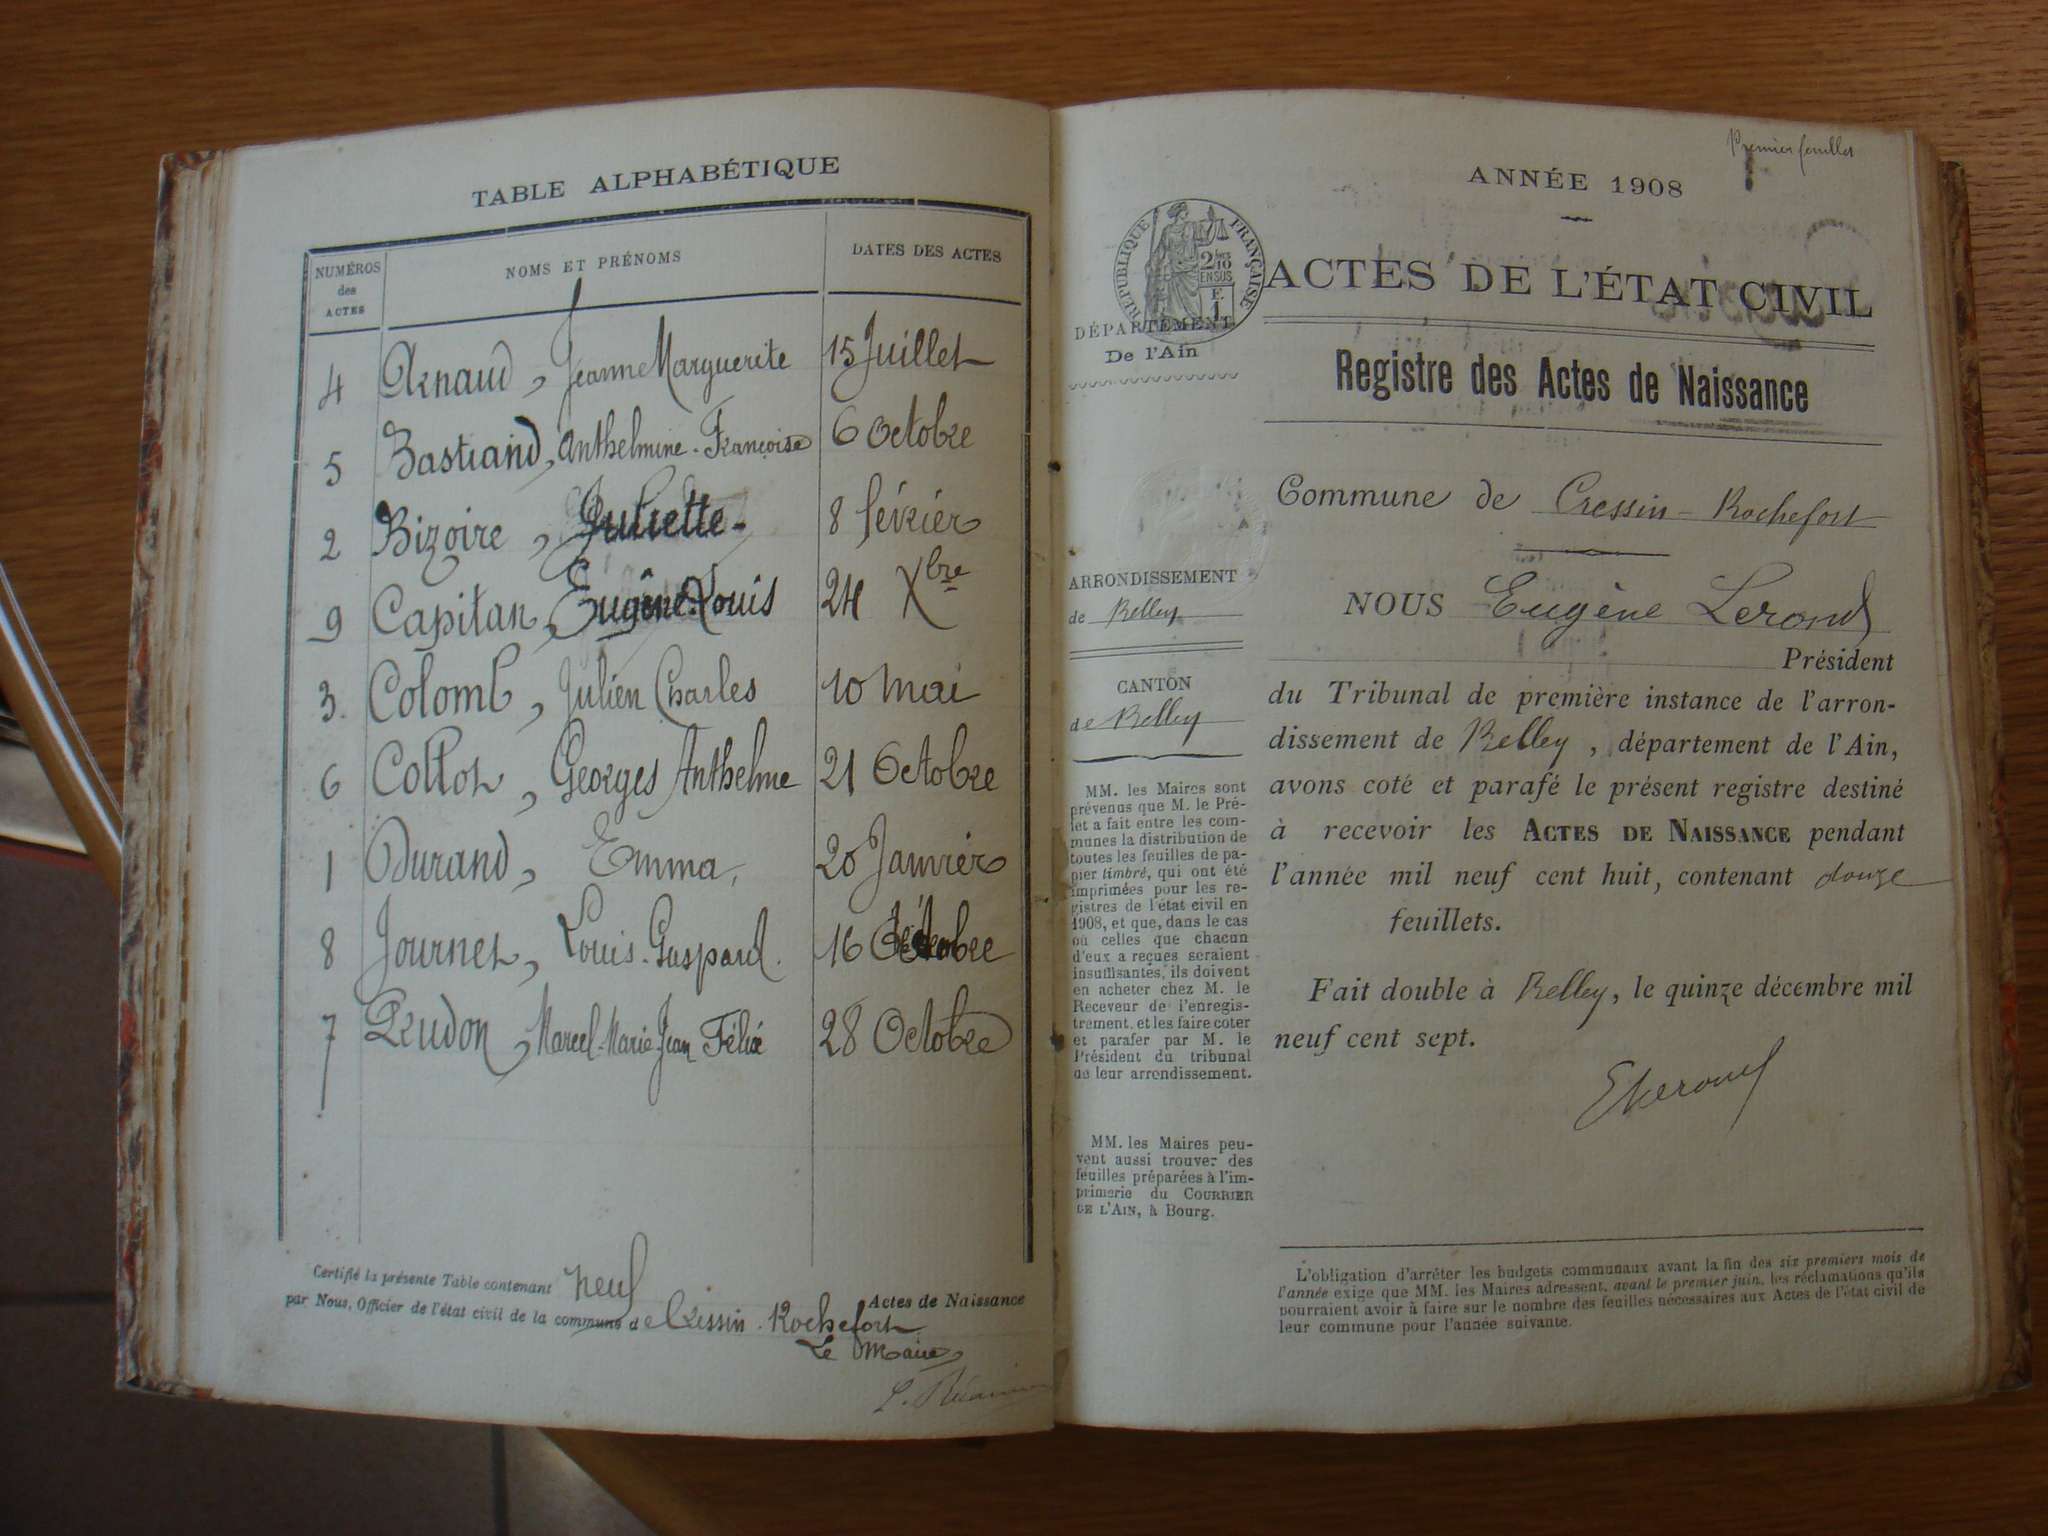 TABLE ALPHABÉTIQUE
NUMÉROS des ACTES
NOMS ET PRÉNOMS
DATES DES ACTES
4 Arnaud, Jeanne Marguerite 15 Juillet
5 Bastrand, Anthelmine-Françoise 6 Octobre
2 Bizoire, Juliette- 8 février
9 Capitan, Eugène Louis 24 Xbre
3. Colomb, Julien Charles 10 mai
6 Collot, Georges Anthelme 21 Octobre
1 Durand, Emma, 20 Janvier
8 Journet, Louis-Gaspard. 16 Décembre
7 Prudon, Marcel-Marie-Jean Félix 28 Octobre
Certifié la présente Table contenant neuf
Actes de Naissance
par Nous, Officier de l'état civil de la commune de Cressin-Rochefort
Le Maire
Premier feuillet
ANNÉE 1908
RÉPUBLIQUE FRANÇAISE
2/10 EN SUS
F. 1
ACTES DE L'ÉTAT CIVIL
DÉPARTEMENT
De l'Ain
Registre des Actes de Naissance
Commune de Cressin-Rochefort
ARRONDISSEMENT
de Belley
CANTON
de Belley
NOUS Eugène Lerond
Président
du Tribunal de première instance de l'arron-
dissement de Belley, département de l'Ain,
avons coté et parafé le présent registre destiné
à recevoir les ACTES DE NAISSANCE pendant
l'année mil neuf cent huit, contenant douze
feuillets.
Fait double à Belley, le quinze décembre mil
neuf cent sept.
ELerond
MM. les Maires sont
prévenus que M. le Pré-
fet a fait entre les com-
munes la distribution de
toutes les feuilles de pa-
pier timbré, qui ont été
imprimées pour les re-
gistres de l'état civil en
1908, et que, dans le cas
où celles que chacun
d'eux a reçues seraient
insuffisantes, ils doivent
en acheter chez M. le
Receveur de l'enregis-
trement, et les faire coter
et parafer par M. le
Président du tribunal
de leur arrondissement.
MM. les Maires peu-
vent aussi trouver des
feuilles préparées à l'im-
primerie du COURRIER
DE L'AIN, à Bourg.
L'obligation d'arrêter les budgets communaux avant la fin des six premiers mois de
l'année exige que MM. les Maires adressent, avant le premier juin, les réclamations qu'ils
pourraient avoir à faire sur le nombre des feuilles nécessaires aux Actes de l'état civil de
leur commune pour l'année suivante.